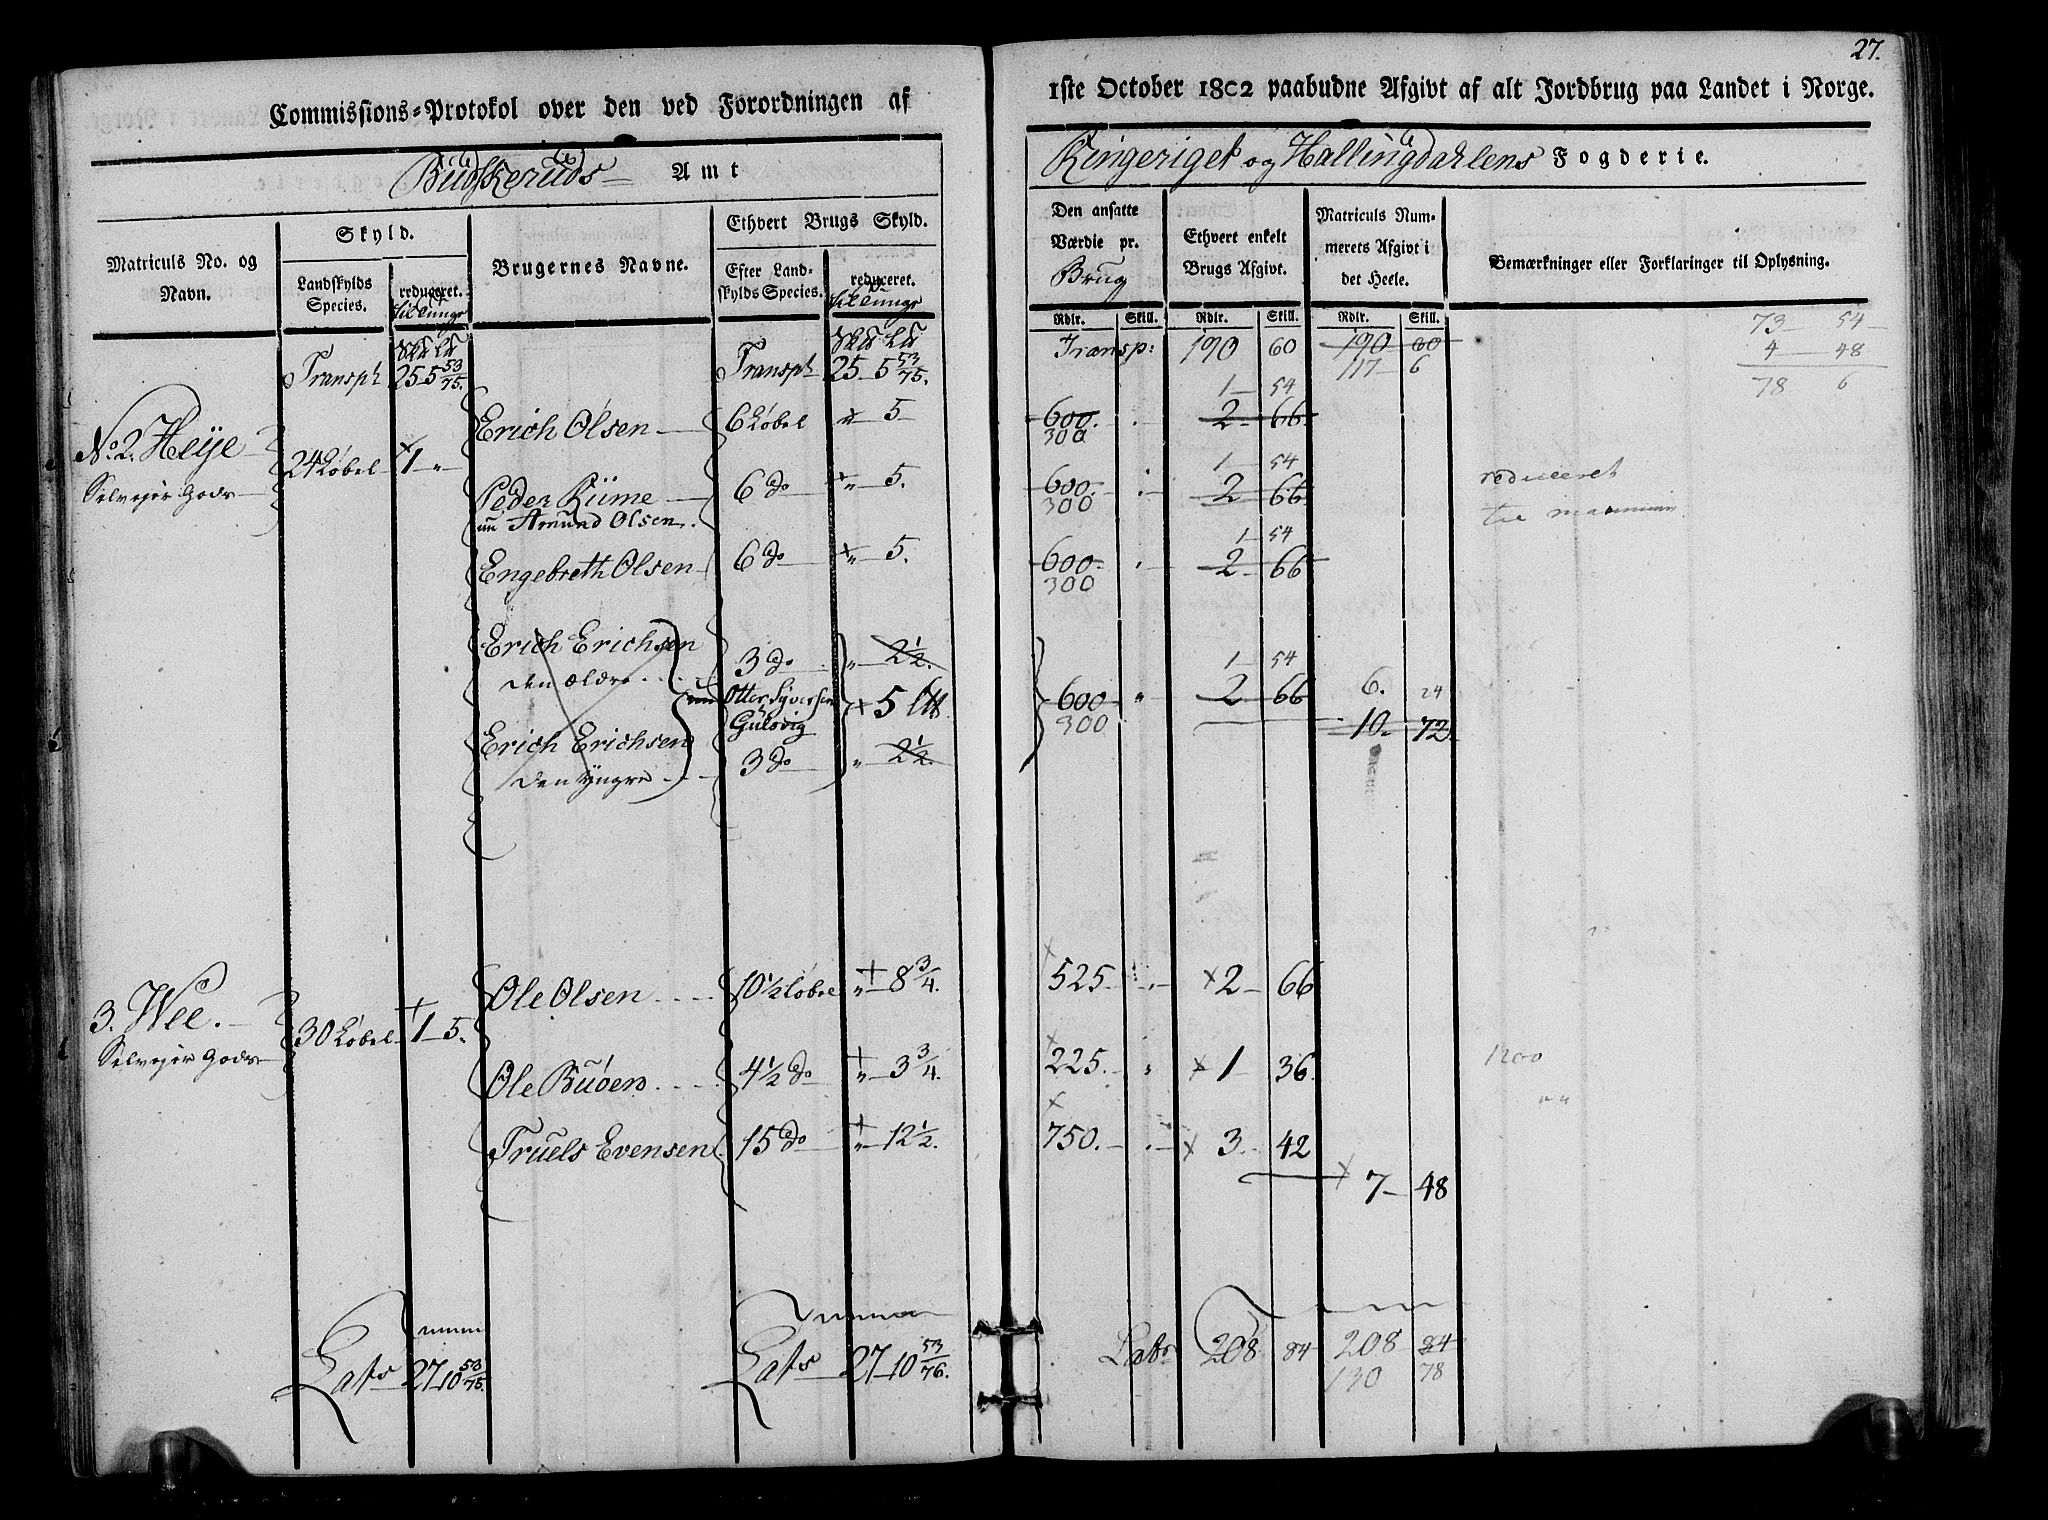 27.
Commissions-Protokol over den ved Forordningen af
1ste October 1802 paabudne Afgivt af alt Jordbrug paa Landet i Norge.
Budskeruds Amt
Ringeriget og Hallingdahlens Fogderie.
Matriculs No. og Navn.
Skyld.
Landskylds Species.
reduceret.
Brugernes Navne.
Ethvert Brugs Skyld.
Efter Landskylds Species.
reduceret.
Den ansatte Værdie pr. Brug
Ethvert enkelt Brugs Afgivt.
Matriculs Nummerets Afgivt i det Heele.
Bemærkninger eller Forklaringer til Oplysning.
Rdlr. Skill. Rdlr. Skill. Rdlr. Skill.
Transpt 25 5 53/75. Transpt 25 5 53/75. Transp: 190 60 190 60
117 6
73 54
4 48
78 6
1 54
No. 2. Heije 24 Løbel 1 "
Selvejer Gods
Erich Olsen 6 Løbel " 5 600. 2 66.
300
1 54
Peder Rime 6 do " 5. 600. 2 66.
un Amund Olsen. 300
reduceret
1 54
Engebreth Olsen 6 do " 5. 600. 2 66
300
Erich Erichsen 3 do " 2½.
den ældre
1 54
Otter Syversen 5 600 " 2 66 6. 24
Gulsvig 300 10 72.
Erich Erichsen 3 do " 2½.
den yngre
3. Wee. 30 Løbel 1 5.
Selvejer Gods
Ole Olsen 10½ Løbel " 8¾. 525. 2 66
Ole Buøen 4½ do " 3¾. 225. " 1 36. 1200
Truels Evensen 15 do " 12½. 750. 3 42
7 48
Lats 27 10 53/75. Lats 27 10 53/76. Lats 208 84 208 84
130 78